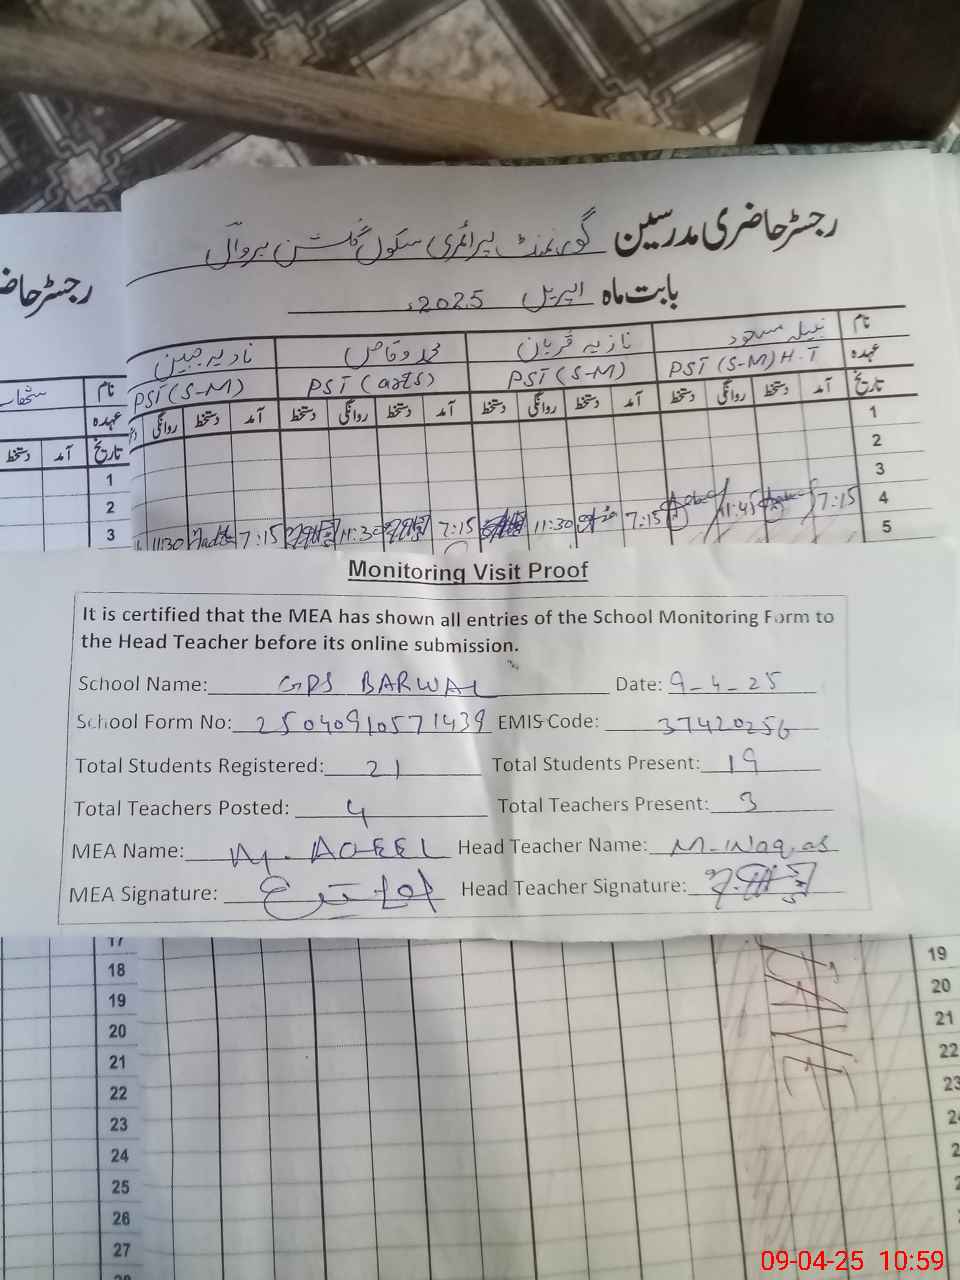 رجسٹر حاضری مدرسین گورنمنٹ پرائمری سکول گلشن بروال
بابت ماہ اپریل 2025ء
نام نبیلہ مسعود نازیہ قربان محمد وقاص نادیہ جبین
عہدہ PST (S-M) H.T PST (S-M) PST (arts) PST (S-M)
تاریخ آمد دستخط روانگی دستخط آمد دستخط روانگی دستخط آمد دستخط روانگی دستخط آمد دستخط روانگی
1
2
3
4 7:15 11:45 7:15 11:30 7:15 11:30 7:15 11:30
5
رجسٹر حاضری
نام
عہدہ
تاریخ آمد دستخط
1
2
3
Monitoring Visit Proof
It is certified that the MEA has shown all entries of the School Monitoring Form to
the Head Teacher before its online submission.
School Name: GPS BARWAL Date: 9-4-25
School Form No: 25040910571439 EMIS Code: 37420256
Total Students Registered: 21 Total Students Present: 19
Total Teachers Posted: 4 Total Teachers Present: 3
MEA Name: M. AQEEL Head Teacher Name: M-Waqas
MEA Signature: Head Teacher Signature:
17
18
19
20
21
22
23
24
25
26
27
19
20
21
22
23
LAVE
09-04-25 10:59